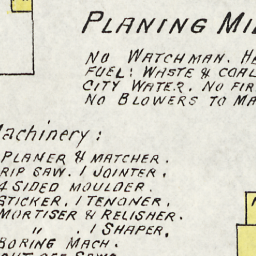 PLANING
NO WATCHMAN.
FUEL: WASTE & COAL
CITY WATER. NO
NO BLOWERS TO
Machinery:
PLANER & MATCHER.
RIP SAW. 1 JOINTER.
4 SIDED MOULDER.
STICKER. 1 TENONER.
MORTISER & RELISHER.
" . 1 SHAPER.
BORING MACH.